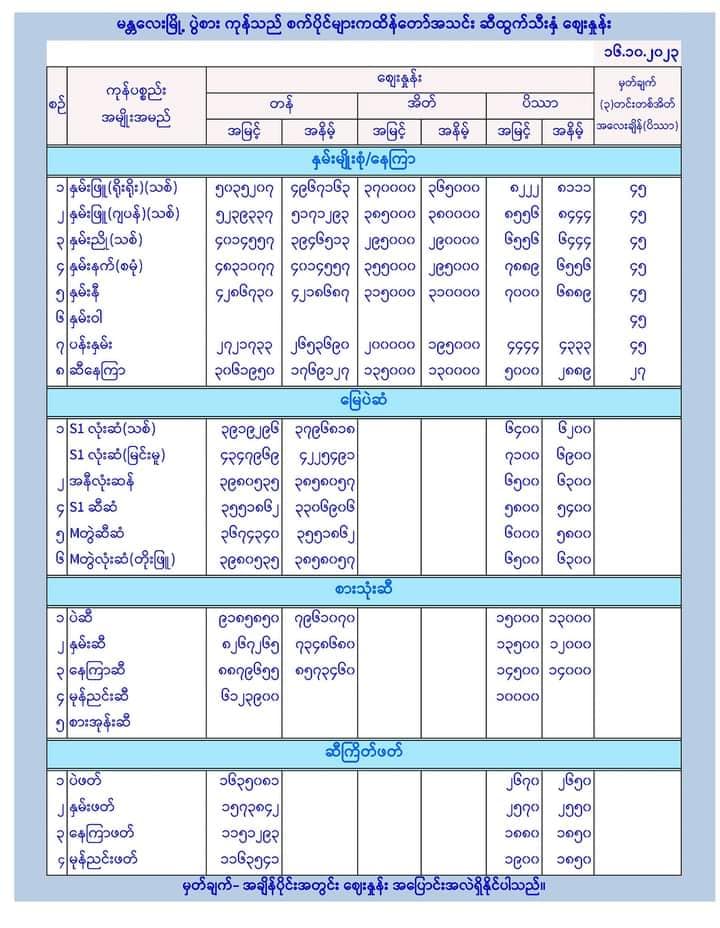 မန္တလေးမြို့ ပွဲစား ကုန်သည် စက်ပိုင်များကထိန်တော်အသင်း ဆီထွက်သီးနှံ ဈေးနှုန်း
၁၆.၁၀.၂၀၂၃
စဉ် ကုန်ပစ္စည်း အမျိုးအမည် ဈေးနှုန်း မှတ်ချက် (၃)တင်းတစ်အိတ် အလေးချိန်(ပိဿာ)
တန် အိတ် ပိဿာ
အမြင့် အနိမ့် အမြင့် အနိမ့် အမြင့် အနိမ့်
နှမ်းမျိုးစုံ/နေကြာ
၁ နှမ်းဖြူ(ရိုးရိုး)(သစ်) ၅၀၃၅၂၀၇ ၄၉၆၇၁၆၃ ၃၇၀၀၀၀ ၃၆၅၀၀၀ ၈၂၂၂ ၈၁၁၁ ၄၅
၂ နှမ်းဖြူ(ဂျပန်)(သစ်) ၅၂၃၉၃၃၇ ၅၁၇၁၂၉၃ ၃၈၅၀၀၀ ၃၈၀၀၀၀ ၈၅၅၆ ၈၄၄၄ ၄၅
၃ နှမ်းညို(သစ်) ၄၀၁၄၅၅၇ ၃၉၄၆၅၁၃ ၂၉၅၀၀၀ ၂၉၀၀၀၀ ၆၅၅၆ ၆၄၄၄ ၄၅
၄ နှမ်းနက်(စမုံ) ၄၈၃၁၀၇၇ ၄၀၁၄၅၅၇ ၃၅၅၀၀၀ ၂၉၅၀၀၀ ၇၈၈၉ ၆၅၅၆ ၄၅
၅ နှမ်းနီ ၄၂၈၆၇၃၀ ၄၂၁၈၆၈၇ ၃၁၅၀၀၀ ၃၁၀၀၀၀ ၇၀၀၀ ၆၈၈၉ ၄၅
၆ နှမ်းဝါ ၄၅
၇ ပန်းနှမ်း ၂၇၂၁၇၃၃ ၂၆၅၃၆၉၀ ၂၀၀၀၀၀ ၁၉၅၀၀၀ ၄၄၄၄ ၄၃၃၃ ၄၅
၈ ဆီနေကြာ ၃၀၆၁၉၅၀ ၁၇၆၉၁၂၇ ၁၃၅၀၀၀ ၁၃၀၀၀၀ ၅၀၀၀ ၂၈၈၉ ၂၇
မြေပဲဆံ
၁ S1 လုံးဆံ(သစ်) ၃၉၁၉၂၉၆ ၃၇၉၆၈၁၈ ၆၄၀၀ ၆၂၀၀
S1 လုံးဆံ(မြင်းမူ) ၄၃၄၇၉၆၉ ၄၂၂၅၄၉၁ ၇၁၀၀ ၆၉၀၀
၂ အနီလုံးဆန် ၃၉၈၀၅၃၅ ၃၈၅၈၀၅၇ ၆၅၀၀ ၆၃၀၀
၄ S1 ဆီဆံ ၃၅၅၁၈၆၂ ၃၃၀၆၉၀၆ ၅၈၀၀ ၅၄၀၀
၅ Mတွဲဆီဆံ ၃၆၇၄၃၄၀ ၃၅၅၁၈၆၂ ၆၀၀၀ ၅၈၀၀
၆ Mတွဲလုံးဆံ(တိုးဖြူ) ၃၉၈၀၅၃၅ ၃၈၅၈၀၅၇ ၆၅၀၀ ၆၃၀၀
စားသုံးဆီ
၁ ပဲဆီ ၉၁၈၅၈၅၀ ၇၉၆၁၀၇၀ ၁၅၀၀၀ ၁၃၀၀၀
၂ နှမ်းဆီ ၈၂၆၇၂၆၅ ၇၃၄၈၆၈၀ ၁၃၅၀၀ ၁၂၀၀၀
၃ နေကြာဆီ ၈၈၇၉၆၅၅ ၈၅၇၃၄၆၀ ၁၄၅၀၀ ၁၄၀၀၀
၄ မုန်ညင်းဆီ ၆၁၂၃၉၀၀ ၁၀၀၀၀
၅ စားအုန်းဆီ
ဆီကြိတ်ဖတ်
၁ ပဲဖတ် ၁၆၃၅၀၈၁ ၂၆၇၀ ၂၆၅၀
၂ နှမ်းဖတ် ၁၅၇၃၈၄၂ ၂၅၇၀ ၂၅၅၀
၃ နေကြာဖတ် ၁၁၅၁၂၉၃ ၁၈၈၀ ၁၈၅၀
၄ မုန်ညင်းဖတ် ၁၁၆၃၅၄၁ ၁၉၀၀ ၁၈၅၀
မှတ်ချက်– အချိန်ပိုင်းအတွင်း ဈေးနှုန်း အပြောင်းအလဲရှိနိုင်ပါသည်။